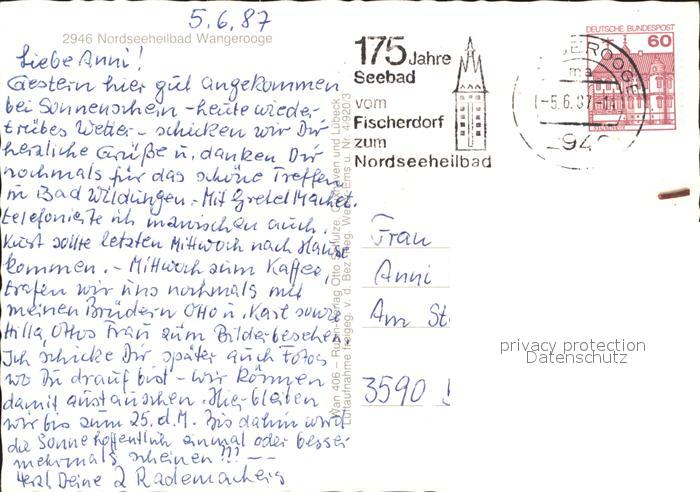 5.6.87
2946 Nordseeheilbad Wangerooge
Liebe Anni!
Gestern hier gut angekommen
bei Sonnenschein - heute wieder
trübes Wetter - schicken wir Dir
herzliche Grüße u. danken Dir
nochmals für das schöne Treffen
in Bad Wildungen. - Mit Gretel
telefonierte ich inzwischen auch.
Kurt sollte letzten Mittwoch nach Hause
kommen. - Mittwoch zum Kaffee
trafen wir uns nochmals mit
meinen Brüdern Otto u. Karl sowie
Hilla, Ottos Frau zum Bilderbesehen.
Ich schicke Dir später auch Fotos
wo Du drauf bist - wir können
damit austauschen. Hier bleiben
wir bis zum 25. d. M. Bis dahin wird
die Sonne hoffentlich einmal oder besser
mehrmals scheinen!!! --
Herzl. Deine 2 Rademachers
Wan 406 - Verlag Otto Schulze, Cuxhaven und Lübeck
Luftaufnahme freigeg. v. d. Bez. Reg. Weser-Ems u. Nr. 4/920/3
175 Jahre
Seebad
vom
Fischerdorf
zum
Nordseeheilbad
DEUTSCHE BUNDESPOST
60
EROOGE
-5.6.87-1
294
Frau
Anni
Am St
3590
privacy protection
Datenschutz